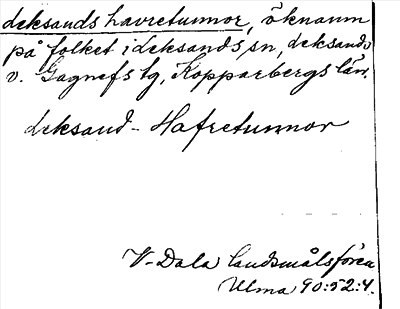 Leksands havretunnor, öknamn
på folket i Leksands sn, Leksands
o. Gagnefs tg, Kopparbergs län.
Leksand - Hafretunnor
V-Dala landsmålsfören
Ulma 90:52:4.